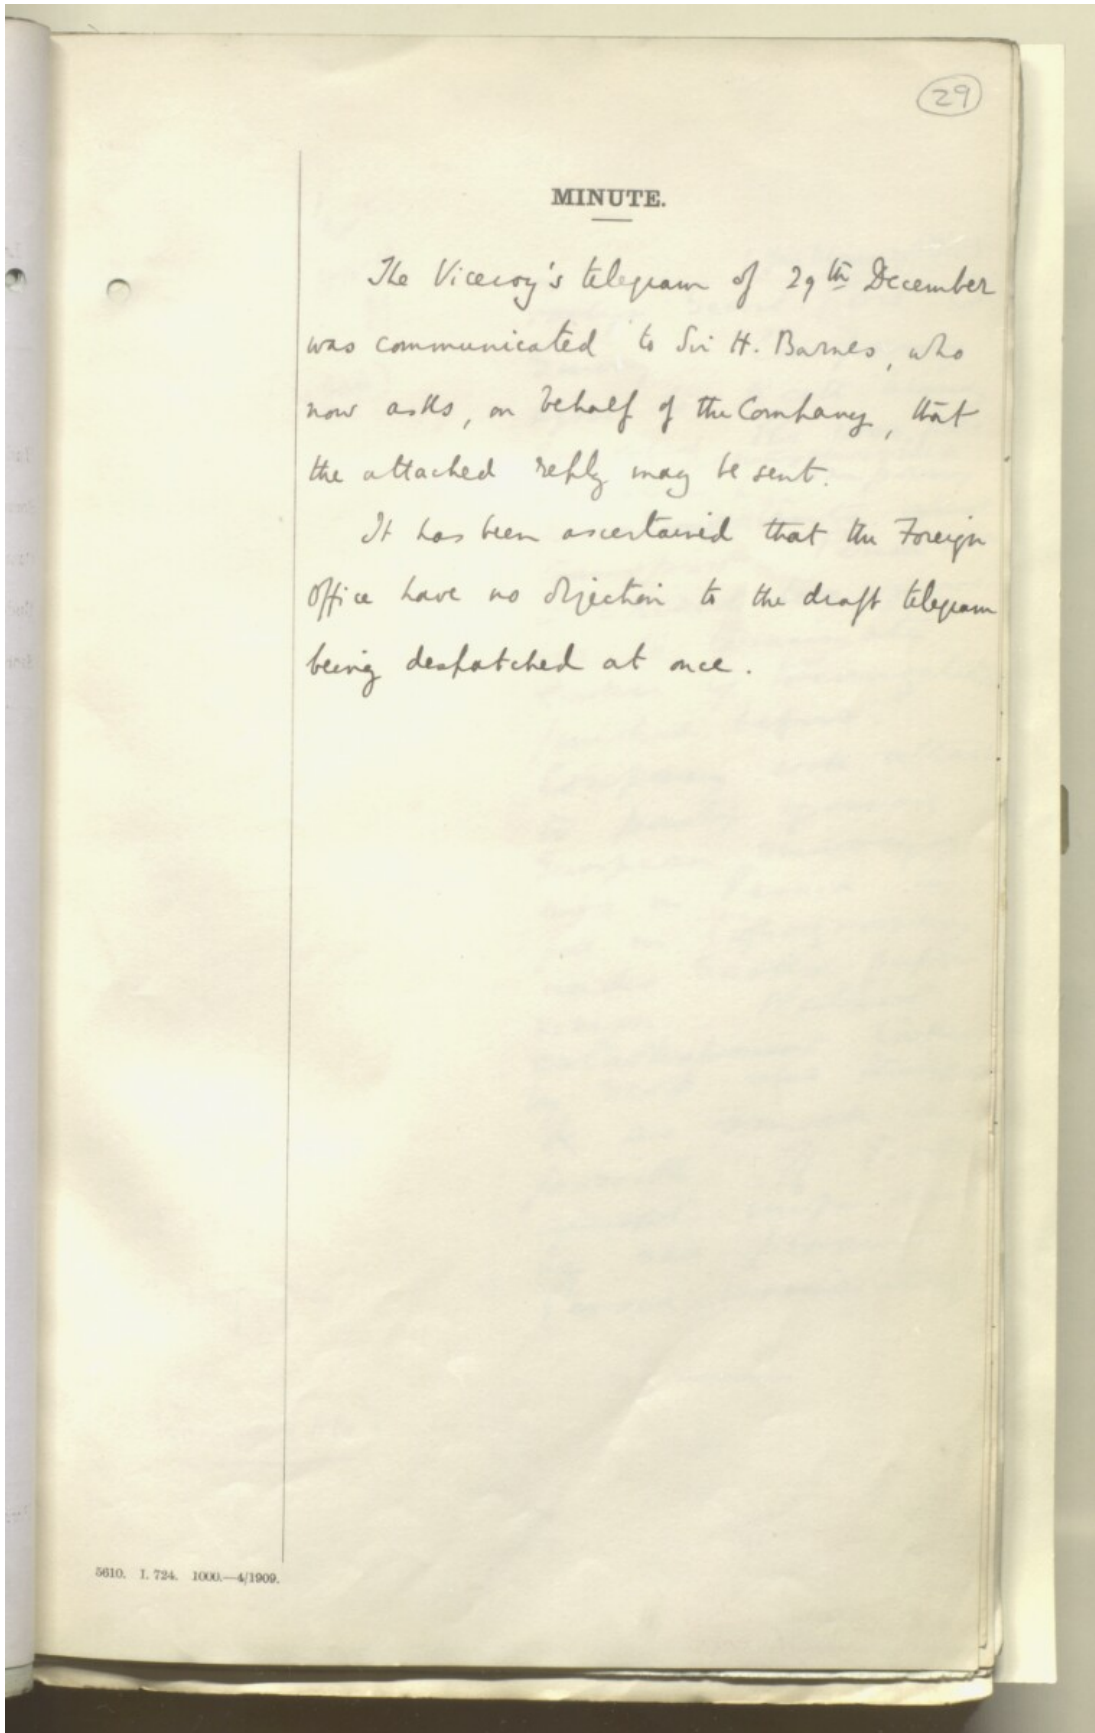 29
MINUTE.
The Viceroy's telegram of 29th December
was communicated to Sir H. Barnes, who
now asks, on behalf of the Company, that
the attached reply may be sent.
It has been ascertained that the Foreign
Office have no objection to the draft telegram
being despatched at once.
5610. I. 724. 1000.—4/1909.